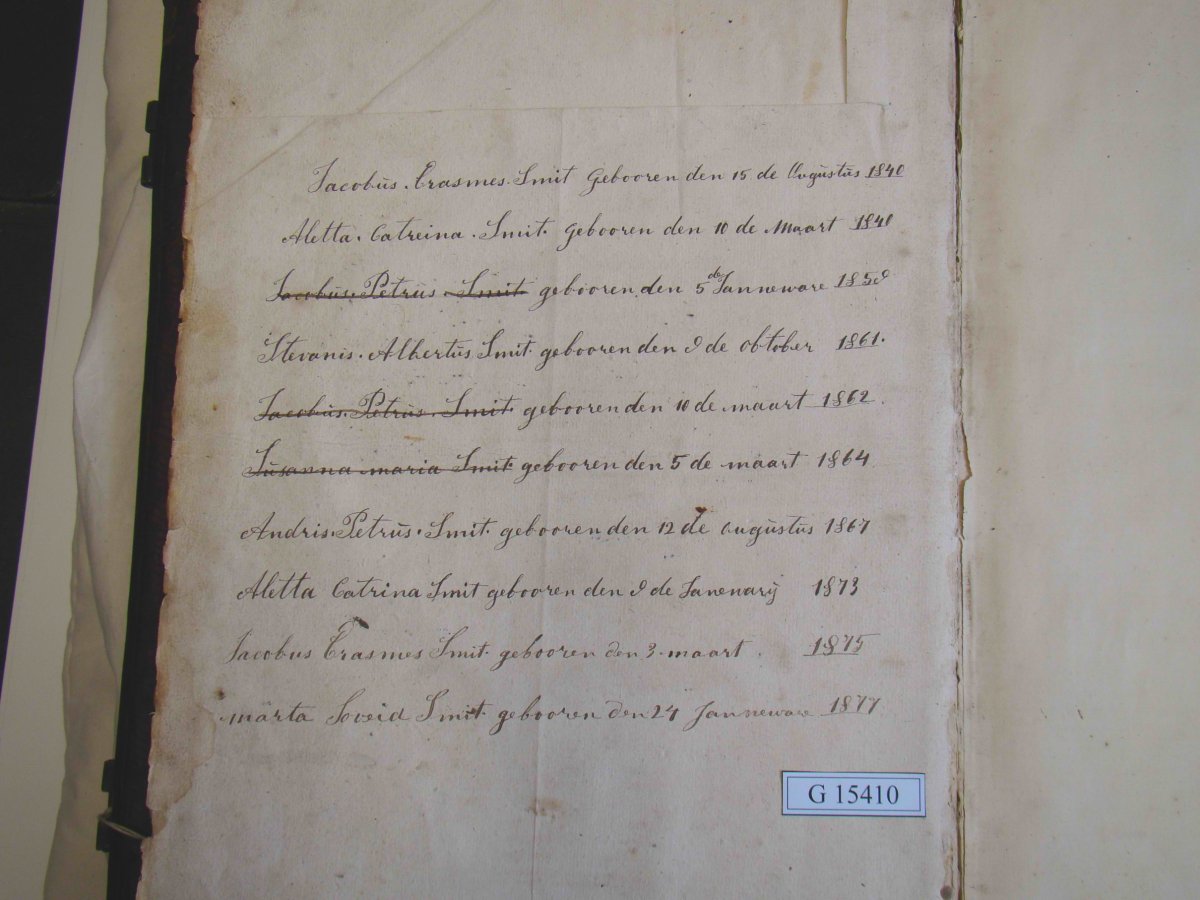 Jacobus. Erasmes. Smit Gebooren den 15 de Augustus 1840
Aletta. Catreina. Smit. Gebooren den 10 de Maart 1840
Jacobus. Petrus. Smit gebooren den 5 de Janneware
Stevanis. Albertus Smit. gebooren den 9 de obtober 1861.
Jacobus. Petrus. Smit. gebooren den 10 de maart 1862.
Susanna maria Smit gebooren den 5 de maart 1864
Andris. Petrus. Smit. gebooren den 12 de augustus 1867
Aletta Catrina Smit gebooren den 9 de Janenarij 1873
Jacobus Erasmes Smit. gebooren den 3. maart. 1875
marta Soveid Smit. gebooren den 24 Janneware 1877
G 15410